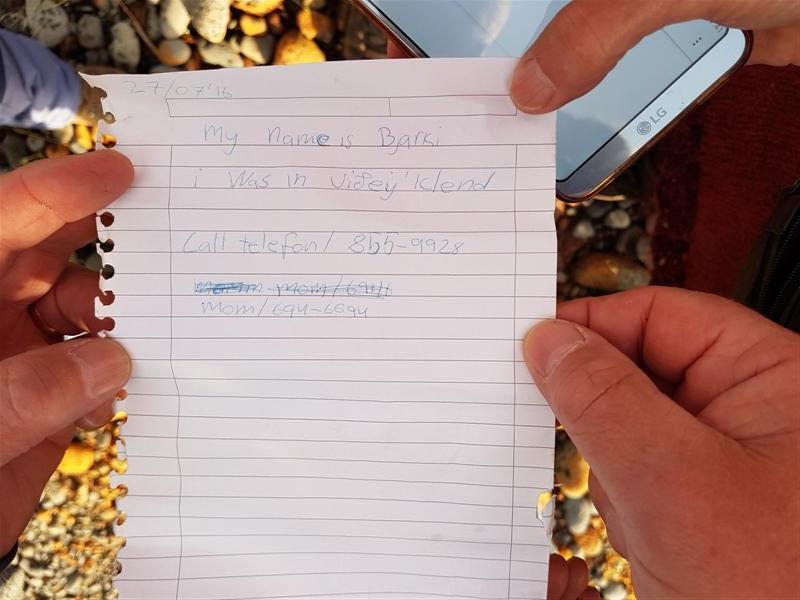 27/07'16
LG
my name is Bjarki
i Was in Viðey Iclend
Call telefon/ 855-9928
mom/694
mom/694-6694